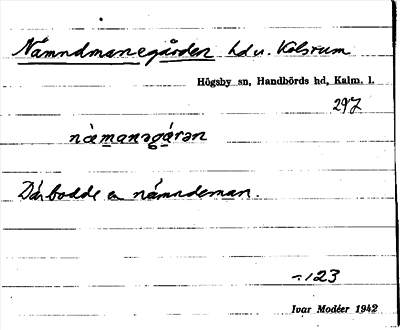 Nämndmanegården hd u. Kolsrum
Högsby sn, Handbörds hd, Kalm. l.
297
nämanəgárən
Där bodde en nämndeman.
-:123
Ivar Modéer 1942